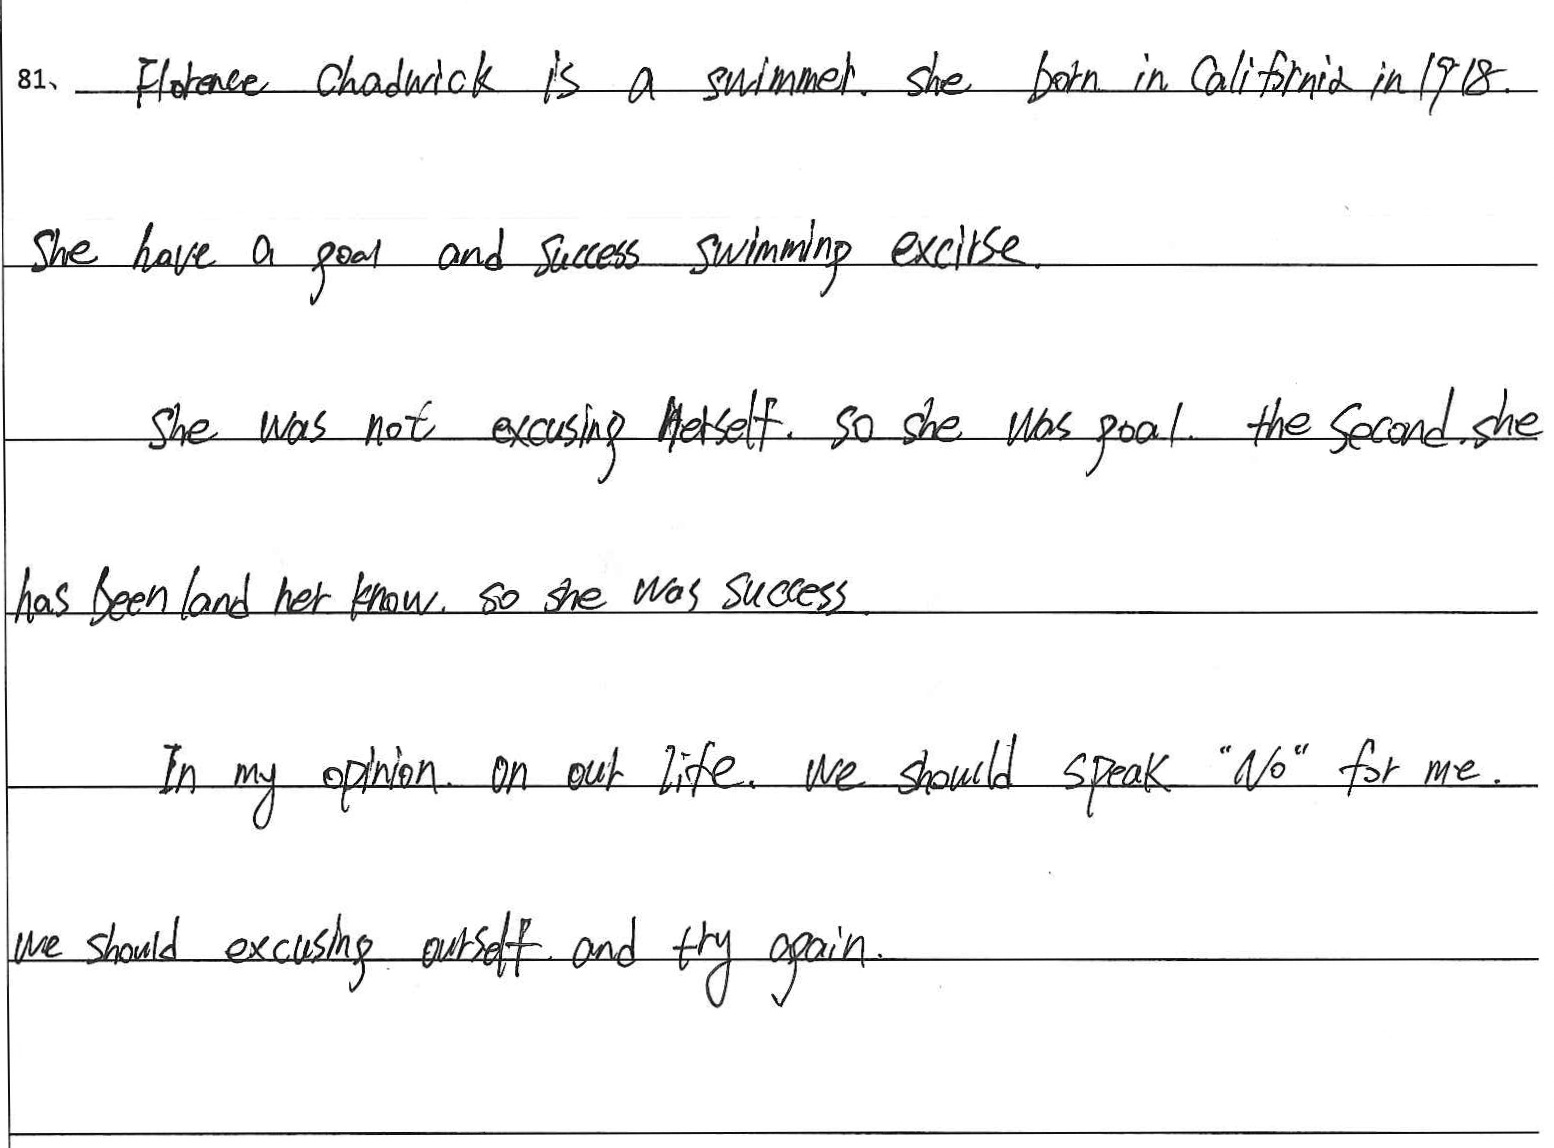 81、 Florence Chadwick is a swimmer. she born in California in 1918.
She have a goal and success swimming excirse.
She was not excusing herself. so she was goal. the second. she
has been land her know. so she was success.
In my opinion. on our life. we should speak "No" for me.
we should excusing ourself. and try again.